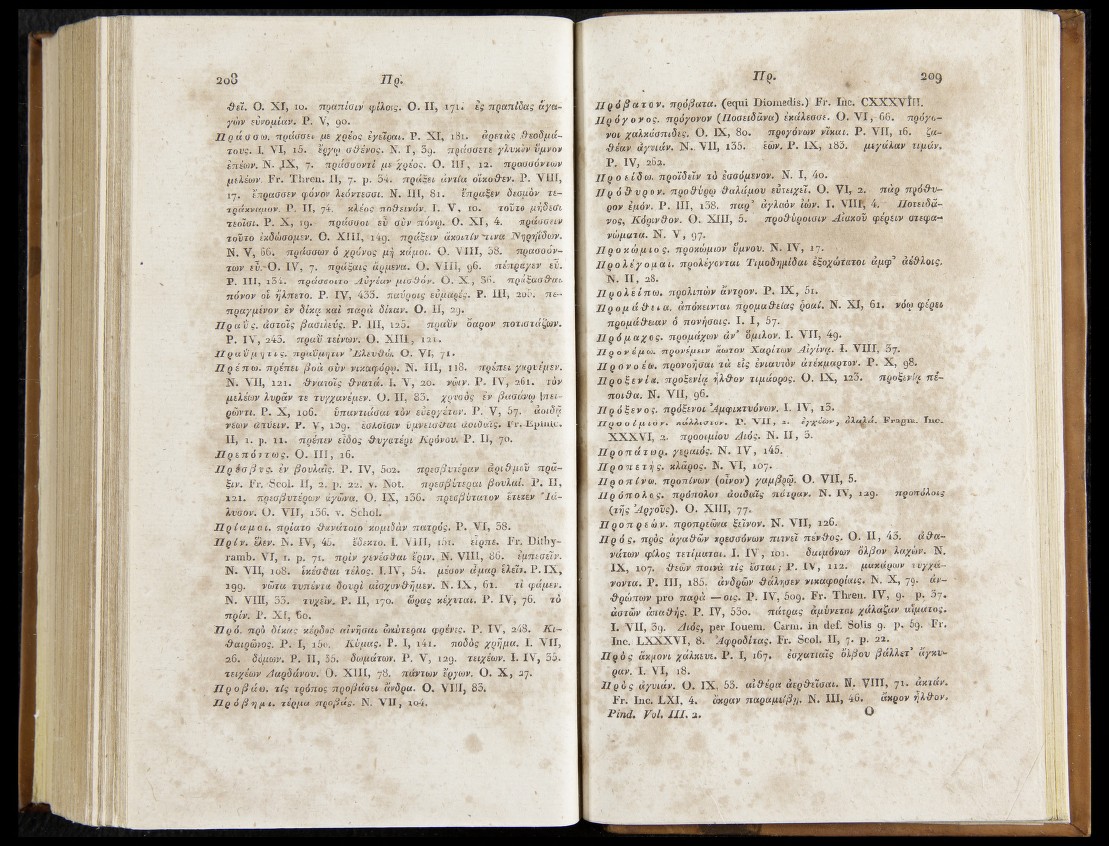 208 Πρ.
θεῖ. O. XI, 10. πραπίσιν φίλοις. O. II, 171. ἐς πραπίδας ἀγα-
γὼν εὐνομίαν. P. V, 90.
Πράσσω. πράσσει με χρέος ἐγεῖραι. P. XI, 181. ἀρετὰς θεοδμά-
τους. I. VI, 15. ἔργῳ σθένος. N. I, 39. πράσσετε γλυκὺν ὕμνον
ἐπέων. N. IX, 7. πράσσοντί με χρέος. O. III, 12. πρασσόντων
μελέων. Fr. Thren. II, 7. p. 34. πράξει ἀντία οἴκοθεν. P. VIII,
17. ἔπρασσεν φόνον λεόντεσσι. N. III, 81. ἔπραξεν δεσμὸν τε-
τράκναμον. P. II, 74. κλέος ποθεινόν. I. V, 10. τοῦτο μήδεσι
τεοῖσι. P. X, 19. πράσσοι εὖ σὺν πόνῳ. O. XI, 4. πράσσειν
τοῦτο ἐκδώσομεν. O. XIII, 149. πράξειν ἄκοιτίν τινα Νηρηΐδων.
N. V, 66. πράσσων ὁ χρόνος μὴ κάμοι. O. VIII, 38. πρασσόν-
των εὖ. O. IV, 7. πράξαις ἄρμενα. O. VIII, 96. πέπραγεν εὖ.
P. III, 132. πράσσοιτο Αὐγέαν μισθόν. O. X, 36. πράξασθαι
πόνον οἱ ἤλπετο. P. IV, 433. παύροις εὐμαρές. P. III, 205. πε-
πραγμένον ἐν δίκᾳ καὶ παρὰ δίκαν. O. II, 29.
Πραΰς. ἀστοῖς βασιλεύς. P. III, 125. πραῢν ὄαρον ποτιστάζων.
P. IV, 243. πραῢ τείνων. O. XIII, 121.
Πραΰμητις. πραΰμητιν Ἐλευθώ. O. VI, 71.
Πρέπω. πρέπει βοὰ σὺν νικαφόρῳ. N. III, 118. πρέπει γαρυέμεν.
N. VII, 121. θνατοῖς θνατά. I. V, 20. νῶιν. P. IV, 261. τὸν
μελέων λυρᾶν τε τυγχανέμεν. O. II, 83. χρυσὸς ἐν βασάνῳ πει-
ρῶντι. P. X, 106. ὑπαντιάσαι τὸν εὐεργέταν. P. V, 57. ἀοιδᾷ
νέων ἀπύειν. P. V, 139. ἐσλοῖσιν ὑμνεῖσθαι ἀοιδαῖς. Fr. Epinic.
II, 1. p. 11. πρέπεν εἶδος θυγατέρι Κρόνου. P. II, 70.
Πρεπόντως. O. III, 16.
Πρέσβυς. ἐν βουλαῖς. P. IV, 502. πρεσβυτέραν ἀριθμοῦ πρᾶ-
ξιν. Fr. Scol. II, 2. p. 22. v. Not. πρεσβύτεραι βουλαί. P. II,
121. πρεσβυτέρων ἀγῶνα. O. IX, 136. πρεσβύτατον ἔτεκεν Ἰά-
λυσον. O. VII, 136. v. Schol.
Πρίαμοι. πρίατο θανάτοιο κομιδὰν πατρός. P. VI, 38.
Πρίν. ἕλεν. N. IV, 45. ἐδεκτο. I. VIII, 151. εἷρπε. Fr. Dithy-
ramb. VI, 1. p. 71. πρὶν γενέσθαι ἔριν. N. VIII, 86. ἐμπεσεῖν.
N. VII, 108. ἱκέσθαι τέλος. I. IV, 54. μέσον ἆμαρ ἑλεῖν. P. IX,
199. νῶτα τυπέντα δουρὶ αἰσχυνθῆμεν. N. IX, 61. τὶ φάμεν.
N. VIII, 33. τυχεῖν. P. II, 170. ὥρας κέχυται. P. IV, 76. τὸ
πρίν. P. XI, 60.
Πρό. πρὸ δίκας κέρδος αἰνῆσαι ὠκύτεραι φρένες. P. IV, 248. Κι-
θαιρῶνος. P. I, 150. Κύμας. P. I, 141. ποδὸς χρῆμα. I. VII,
26. δόμων. P. II, 35. δωμάτων. P. V, 129. τειχέων. I. IV, 35.
τειχέων Δαρδάνου. O. XIII, 78. πάντων ἔργων. O. X, 27.
Προβάω. τίς τρόπος προβάσει ἄνδρα. O. VIII, 83.
Πρόβημι. τέρμα προβάς. N. VII, 104.
Πρ. 209
Πρόβατον. πρόβατα. (equi Diomedis.) Fr. Inc. CXXXVIII.
Πρόγονος. πρόγονον (Ποσειδᾶνα) ἐκάλεσσε. O. VI, 66. πρόγο-
νοι χαλκάσπιδες. O. IX, 80. προγόνων νῖκαι. P. VII, 16. ζα-
θέαν ἀγυιάν. N. VII, 135. ἑῶν. P. IX, 183. μεγάλαν τιμάν.
P. IV, 262.
Προείδω. προϊδεῖν τὸ ἐσσόμενον. N. I, 40.
Πρόθυρον. προθύρῳ θαλάμου εὐτειχεῖ. O. VI, 2. πὰρ πρόθυ-
ρον ἐμόν. P. III, 138. παρ᾽ ἀγλαὸν ἰών. I. VIII, 4. Ποτειδᾶ-
νος, Κόρινθον. O. XIII, 5. προθύροισιν Αἰακοῦ φέρειν στεφα-
νώματα. N. V, 97.
Προκώμιος. προκώμιον ὕμνου. N. IV, 17.
Προλέγομαι. προλέγονται Τιμοδημίδαι ἐξοχώτατοι ἀμφ᾽ ἀέθλοις.
N. II, 28.
Προλείπω. προλιπὼν ἄντρον. P. IX, 51.
Προμάθεια. ἀπόκεινται προμαθείας ῥοαί. N. XI, 61. νόῳ φέρει
προμάθειαν ὁ πονήσαις. I. I, 57.
Πρόμαχος. προμάχων ἀν᾽ ὅμιλον. I. VII, 49.
Προνέμω. προνέμειν ἄωτον Χαρίτων Αἰγίνᾳ. I. VIII, 37.
Προνοέω. προνοῆσαι τὰ εἰς ἐνιαυτὸν ἀτέκμαρτον. P. X, 98.
Προξενία. προξενίᾳ ἦλθον τιμάορος. O. IX, 123. προξενίᾳ πέ-
ποιθα. N. VII, 96.
Πρόξενος. πρόξενοι Ἀμφικτυόνων. I. IV, 13.
Προοίμιον. κάλλιστον. P. VII, 2. ἐγχέων, ὀλολά. Fragm. Inc.
XXXVI, 2. προοιμίου Διός. N. II, 3.
Προπάτωρ. γεραιός. N. IV, 145.
Προπετής. κλᾶρος. N. VI, 107.
Προπίνω. προπίνων (οἶνον) γαμβρῷ. O. VII, 5.
Πρόπολος. πρόπολον ἀοιδαῖς πάτραν. N. IV, 129. προπόλοις
(τῆς Ἀργοῦς). O. XIII, 77.
Προπρεών. προπρεῶνα ξεῖνον. N. VII, 126.
Πρός. πρὸς ἀγαθῶν κρεσσόνων πιτνεῖ πένθος. O. II, 43. ἀθα-
νάτων φίλος τετίμαται. I. IV, 101. δαιμόνων ὄλβον λαχών. N.
IX, 107. θεῶν ποινὰ τίς ἔσται; P. IV, 112. μακάρων τυγχά-
νοντα. P. III, 185. ἀνδρῶν θάλησεν νικαφορίαις. N. X, 79. ἀν-
θρώπων pro παρά — οις. P. IV, 509. Fr. Thren. IV, 9. p. 37.
ἀστῶν ἀπαθής. P. IV, 530. πάτρας ἀμύνεται χάλαζαν αἵματος.
I. VII, 39. Διός, per Iouem. Carm. in def. Solis 9. p. 59. Fr.
Inc. LXXXVI, 8. Ἀφροδίτας. Fr. Scol. II, 7. p. 22.
Πρὸς ἄκμονι χάλκευε. P. I, 167. ἐσχατιαῖς ὄλβου βάλλετ᾽ ἄγκυ-
ραν. I. VI, 18.
Πρὸς ἀγυιάν. O. IX, 53. αἰθέρα ἀερθεῖσαι. N. VIII, 71. ἀκτάν.
Fr. Inc. LXI, 4. ἄκραν παραμείβῃ. N. III, 46. ἄκρον ἦλθον.
Pind. Vol. III. 2. O